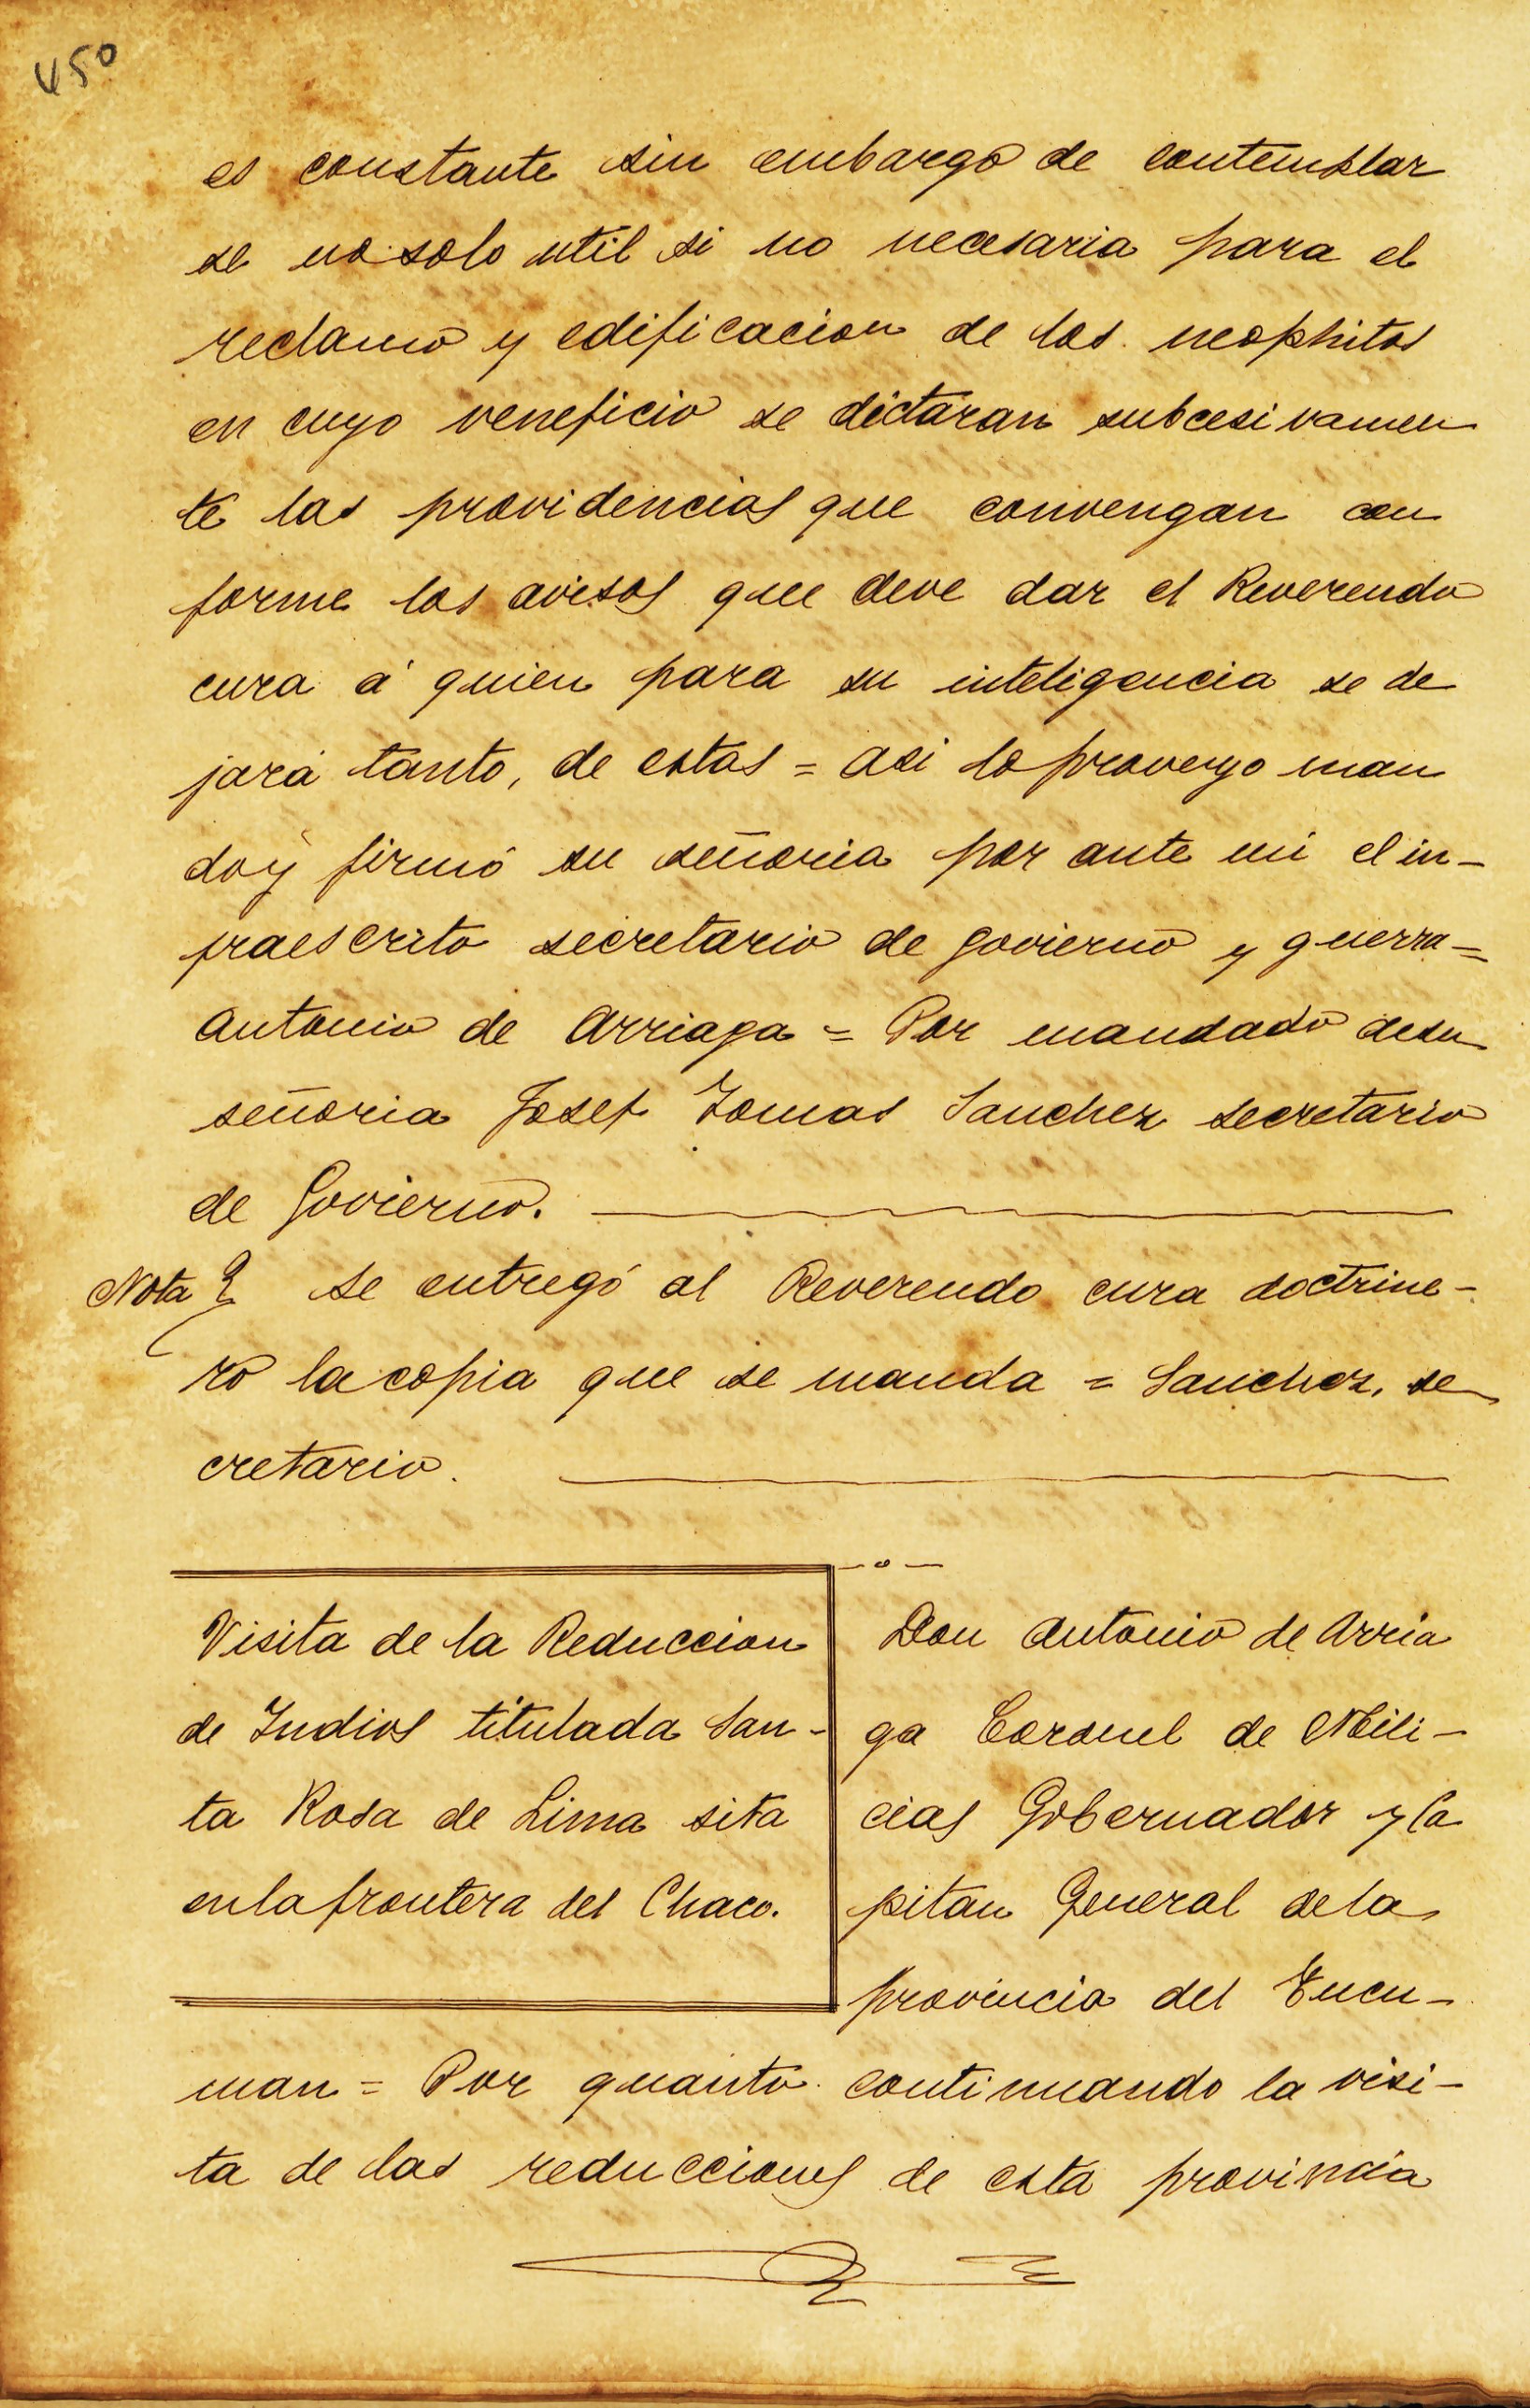 450
es constante sin embargo de contemplar
se no solo util si no necesaria para el
reclamo y edificacion de los neophitos
en cuyo veneficio se dictaran subcesivamen
te las providencias que convengan con
forme los avisos que deve dar el Reverendo
cura á quien para su inteligencia se de
jará tanto, de estas = asi lo proveyo man
do y firmó su señoria por ante mi el in-
fraescrito secretario de govierno y guerra=
Antonio de Arriaga = Por mandado de su
señoria Josef Tomas Sanchez secretario
de Govierno.
Nota } se entregó al Reverendo cura doctrine-
ro la copia que se manda = Sanchez, se
cretario.
Visita de la Reduccion
de Indios titulada San-
ta Rosa de Lima sita
en la frontera del Chaco.
Don Antonio de Arria
ga Coronel de Mili-
cias Gobernador y Ca
pitan General de la
provincia del Tucu-
man = Por quanto continuando la visi-
ta de las reducciones de esta provincia